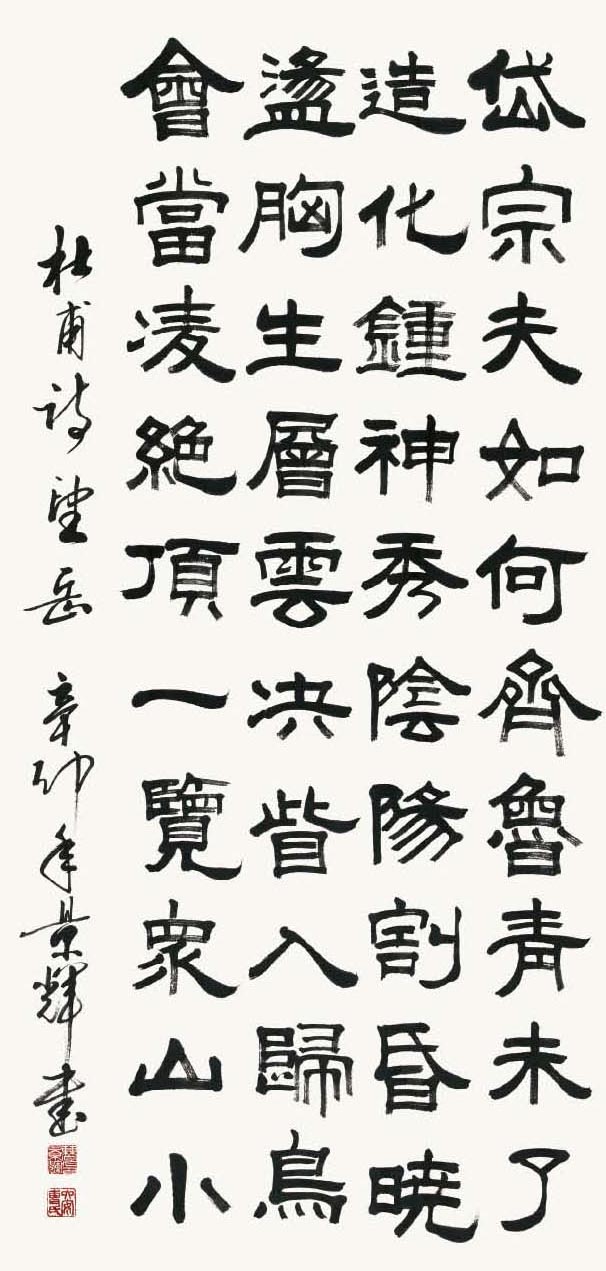 岱宗夫如何齊魯青未了
造化鍾神秀陰陽割昏曉
盪胸生層雲決眥入歸鳥
會當凌絕頂一覽衆山小
杜甫詩望岳 辛卯年景輝書